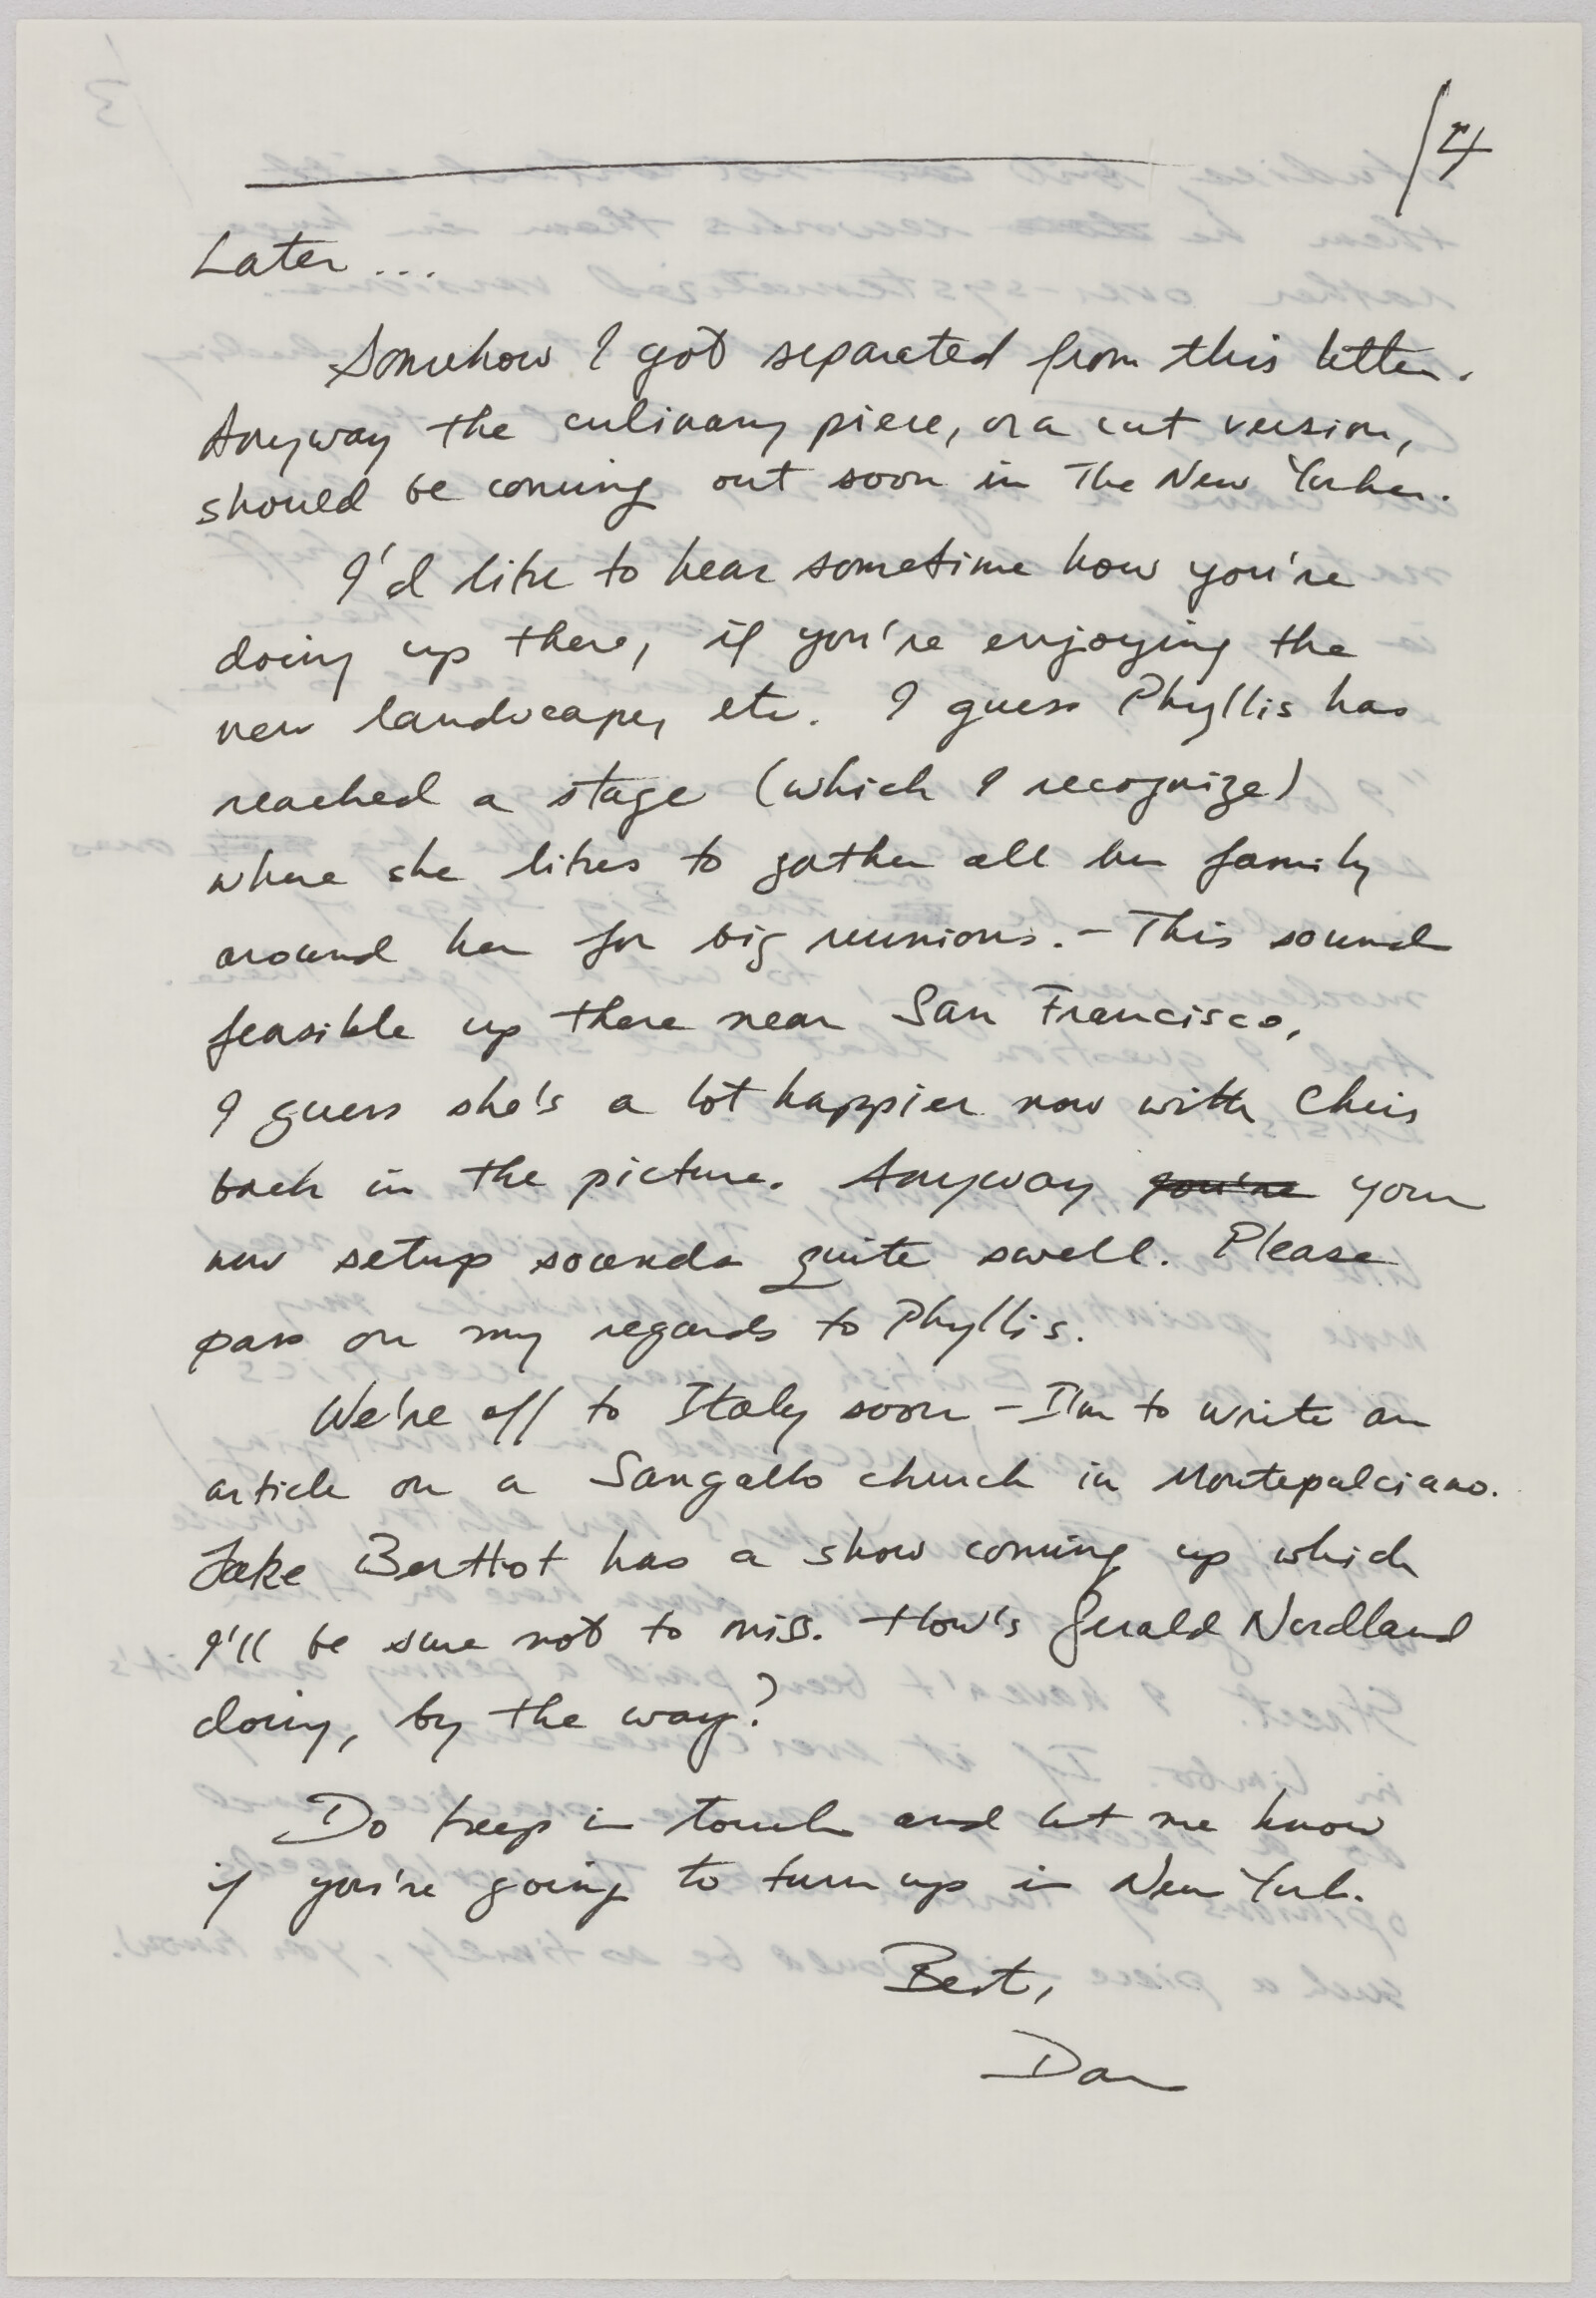 /4
Later ...
Somehow I got separated from this letter.
Anyway the culinary piece, or a cut version,
should be coming out soon in The New Yorker.
I'd like to hear sometime how you're
doing up there, if you're enjoying the
new landscape, etc. I guess Phyllis has
reached a stage (which I recognize)
where she likes to gather all her family
around her for big reunions. – This sounds
feasible up there near San Francisco,
I guess she's a lot happier now with Chris
back in the picture. Anyway you're your
new setup sounds quite swell. Please
pass on my regards to Phyllis.
We're off to Italy soon – I'm to write an
article on a Sangallo church in Montepulciano.
Jake Berthot has a show coming up which
I'll be sure not to miss. How's Gerald Nordland
doing, by the way?
Do keep in touch and let me know
if you're going to turn up in New York.
Best,
Dan